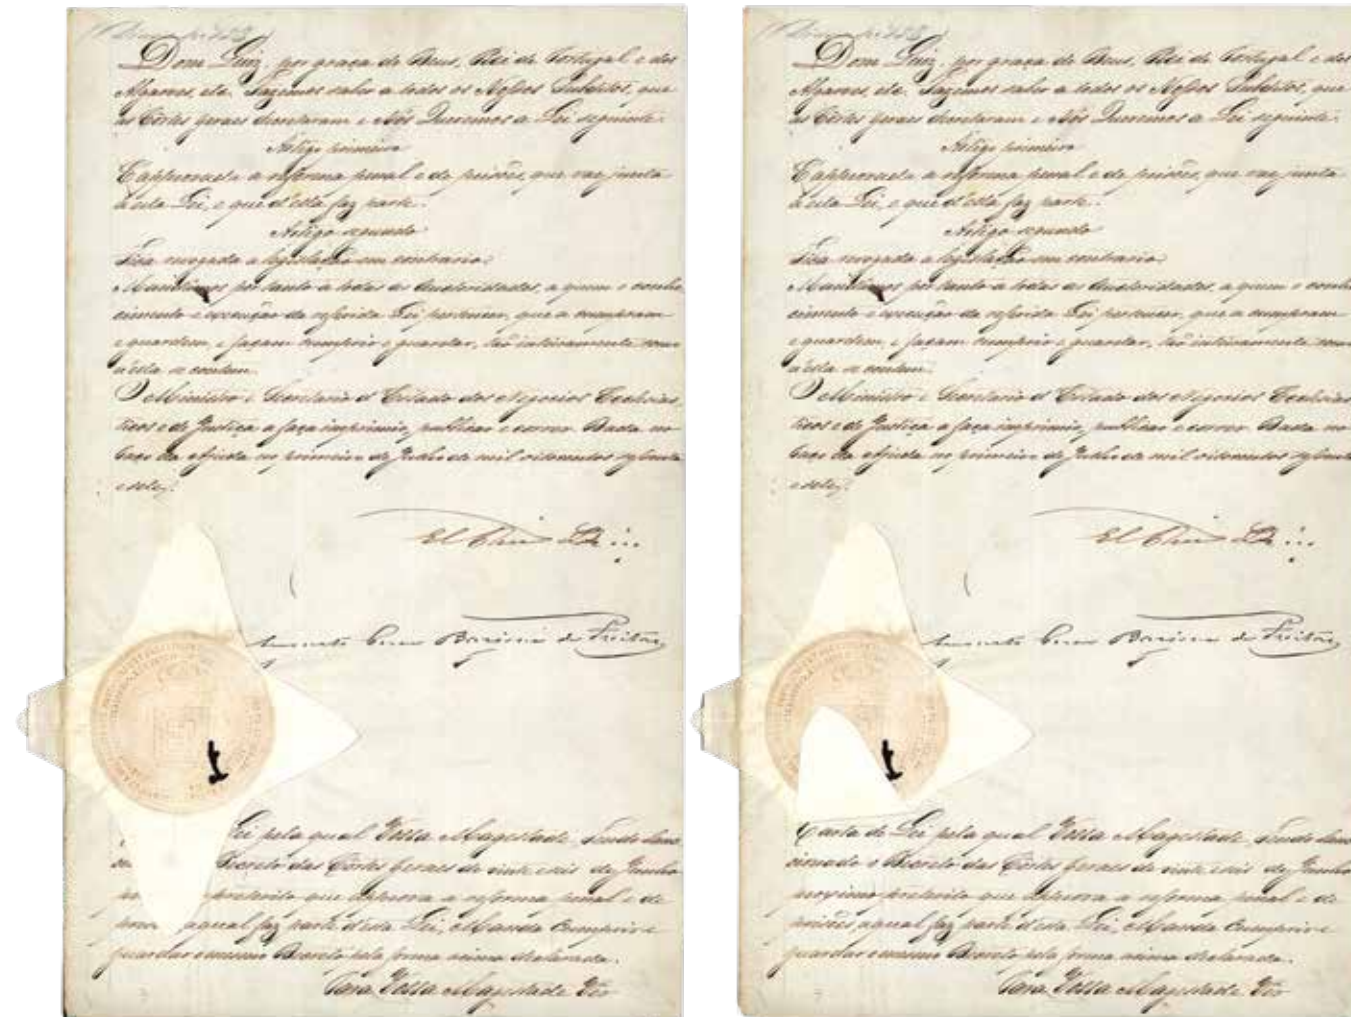 Dom Luiz, por graça de Deus, Rei de Portugal e dos
Algarves, etc. Fazemos saber a todos os Nossos Subditos, que
as Côrtes geraes decretaram e Nós Queremos a Lei seguinte:
Artigo primeiro
É approvada a reforma penal e de prisões, que vae junta
a esta Lei, e que d'esta faz parte.
Artigo segundo
Fica revogada a legislação em contrario.
Mandâmos por tanto a todas as Auctoridades, a quem o conhe
cimento e execução da referida Lei pertencer, que a cumpram
e guardem, e façam cumprir e guardar, tão inteiramente como
n'ella se contem.
O Ministro e Secretario d'Estado dos Negocios Ecclesias
ticos e de Justiça a faça imprimir, publicar e correr. Dada no
Paço da Ajuda no primeiro de Julho de mil oitocentos sessenta
e sete.
El Rei
Augusto Cesar Barjona de Freitas
Lei pela qual Vossa Magestade, Sendo Sanc
Decreto das Côrtes Geraes de vinte e seis de Junho
preterito que approva a reforma penal e de
aqual faz parte d'esta Lei, Manda cumprir e
guardar o mesmo Decreto pela forma acima declarada.
Para Vossa Magestade Ver
Dom Luiz, por graça de Deus, Rei de Portugal e dos
Algarves, etc. Fazemos saber a todos os Nossos Subditos, que
as Côrtes geraes decretaram e Nós Queremos a Lei seguinte:
Artigo primeiro
É approvada a reforma penal e de prisões, que vae junta
a esta Lei, e que d'esta faz parte.
Artigo segundo
Fica revogada a legislação em contrario.
Mandâmos por tanto a todas as Auctoridades, a quem o conhe
cimento e execução da referida Lei pertencer, que a cumpram
e guardem, e façam cumprir e guardar, tão inteiramente como
n'ella se contem.
O Ministro e Secretario d'Estado dos Negocios Ecclesias
ticos e de Justiça a faça imprimir, publicar e correr. Dada no
Paço da Ajuda no primeiro de Julho de mil oitocentos sessenta
e sete.
El Rei
Augusto Cesar Barjona de Freitas
Carta de Lei pela qual Vossa Magestade, Sendo Sanc
cionado o Decreto das Côrtes Geraes de vinte e seis de Junho
proximo preterito que approva a reforma penal e de
prisões, aqual faz parte d'esta Lei, Manda cumprir e
guardar o mesmo Decreto pela forma acima declarada.
Para Vossa Magestade Ver